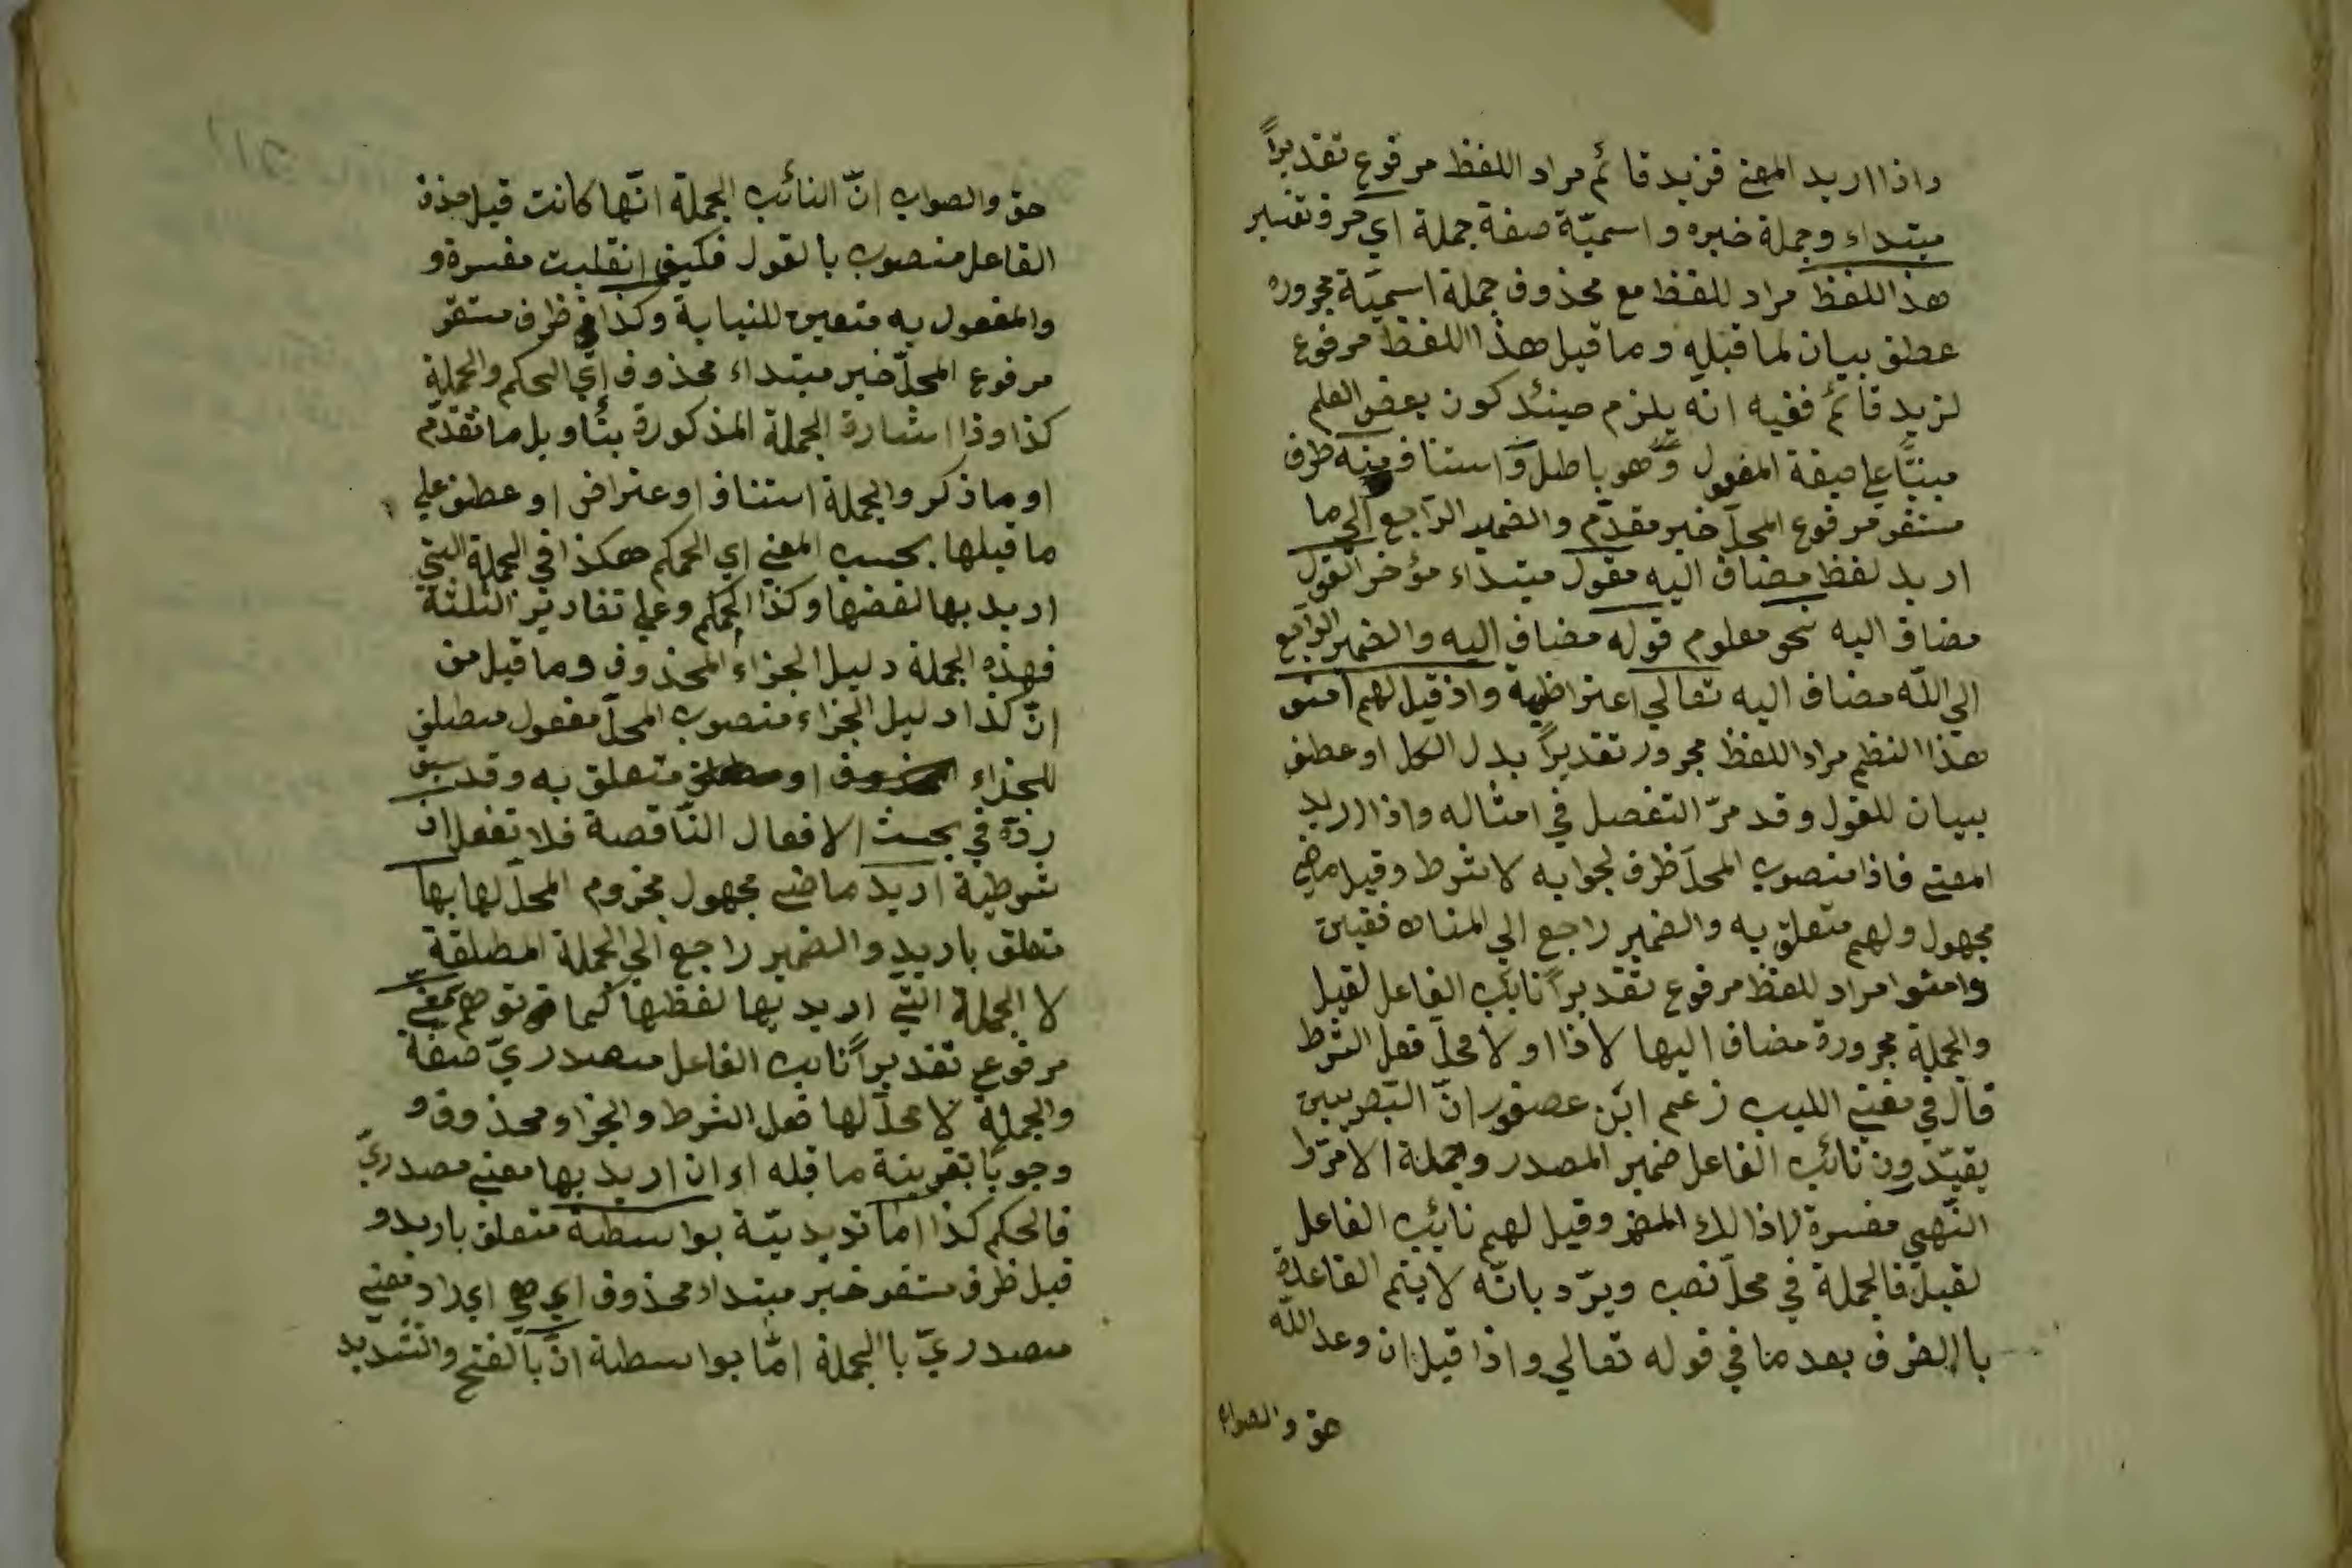 واذا اريد المعنى فزيد قائم مراد اللفظ مرفوع تقديراً
مبتداء وجملة خبره واسميّة صفة جملة اي حرف تفسير
هذا اللفظ مراد للفظ مع محذوف جملة اسميّة مجروره
عطف بيان لما قبله وما قيل هذا اللفظ مرفوع
لزيد قائم ففيه انه يلزم حينئد كون بعض العلم
مبنيّاً علي صيغة المفعول وهو باطل واستناف منه ظرف
مستقر مرفوع المحلّ خبر مقدّم والضمير الرّاجع الي ما
اريد لفظ مضاف اليه مقول مبتداء مؤخر القول
مضاف اليه نحو معلوم قوله مضاف اليه والضمير الرّاجع
الي اللّه مضاف اليه تعالي اعتراظية واذ قيل لهم امنو
هذا النظم مراد اللفظ مجرور تقديراً بدل الكل او عطف
بيان للقول وقد مرّ التفصل في امثاله واذا اريد
المعنى فاذا منصوب المحلّ ظرف لجوابه لا شرط وقيل ماضي
مجهول ولهم متعلق به والضمير راجع الي المنا فقين
وامنوا مراد للفظ مرفوع تقديراً نائب الفاعل لقيل
والجملة مجرورة مضاف اليها لاذا او لا محلّ فعل الشرط
قال في مغني اللبيب زعم ابن عصفور انّ البصريين
يقيّدون نائب الفاعل ضمير المصدر وجملة الامرّ
النّهي مفسرة لاذالك المضمر وقيل لهم نائب الفاعل
لقيل فالجملة في محلّ نصب ويرّد بانّه لا يتم الفاعلة
با الظرف بعد ما في قوله تعالي واذا قيل ان وعد اللّه
حق والصواب
حق والصواب انّ النائب الجملة انّها كانت قبل حذف
الفاعل منصوب بالقول فكيف انقلبت مفسرة و
والمفعول به متعين للنيابة وكذا في ظرف مستقر
مرفوع المحلّ خبر مبتداء محذوف اي الحكم والجملة
كذا وذا اشارة الجملة المذكورة بتاويل ما تقدّم
او ما ذكر والجملة استناف او عتراض او عطف علي
ما قبلها بحسب المعني اي الحكم هكذا في الجملة التي
اريد بها لفضها وكذا الحكم وعلي تقادير الثلثة
فهذه الجملة دليل الجزاء المحذوف وما قيل من
انّ كذا دليل الجزاء منصوب المحلّ مفعول مطلق
للجزاء المحذوف او متعلق به وقد سبق
ردّه في بحث الافعال النّاقصة فلا تغفل ان
شرطية اريد ماضي مجهول مجزوم المحلّ لها بها
متعلق باريد والضمير راجع الي الجملة المطلقة
لا الجملة التّي اريد بها لفظها كما توهم معني
مرفوع تقديراً نائب الفاعل مصدريّ صفة
والجملة لا محلّ لها فعل الشرط والجزاء محذوف و
وجوبًا بقرينة ما قبله اء ان اريد بها معني مصدريّ
فالحكم كذا امّا ترديديّة بواسطة متعلق باريد و
قيل ظرف مستقر خبر مبتداء محذوف اي هي ايراد معني
مصدريّ با الجملة امّا بواسطة انّ بالفتح والتشديد